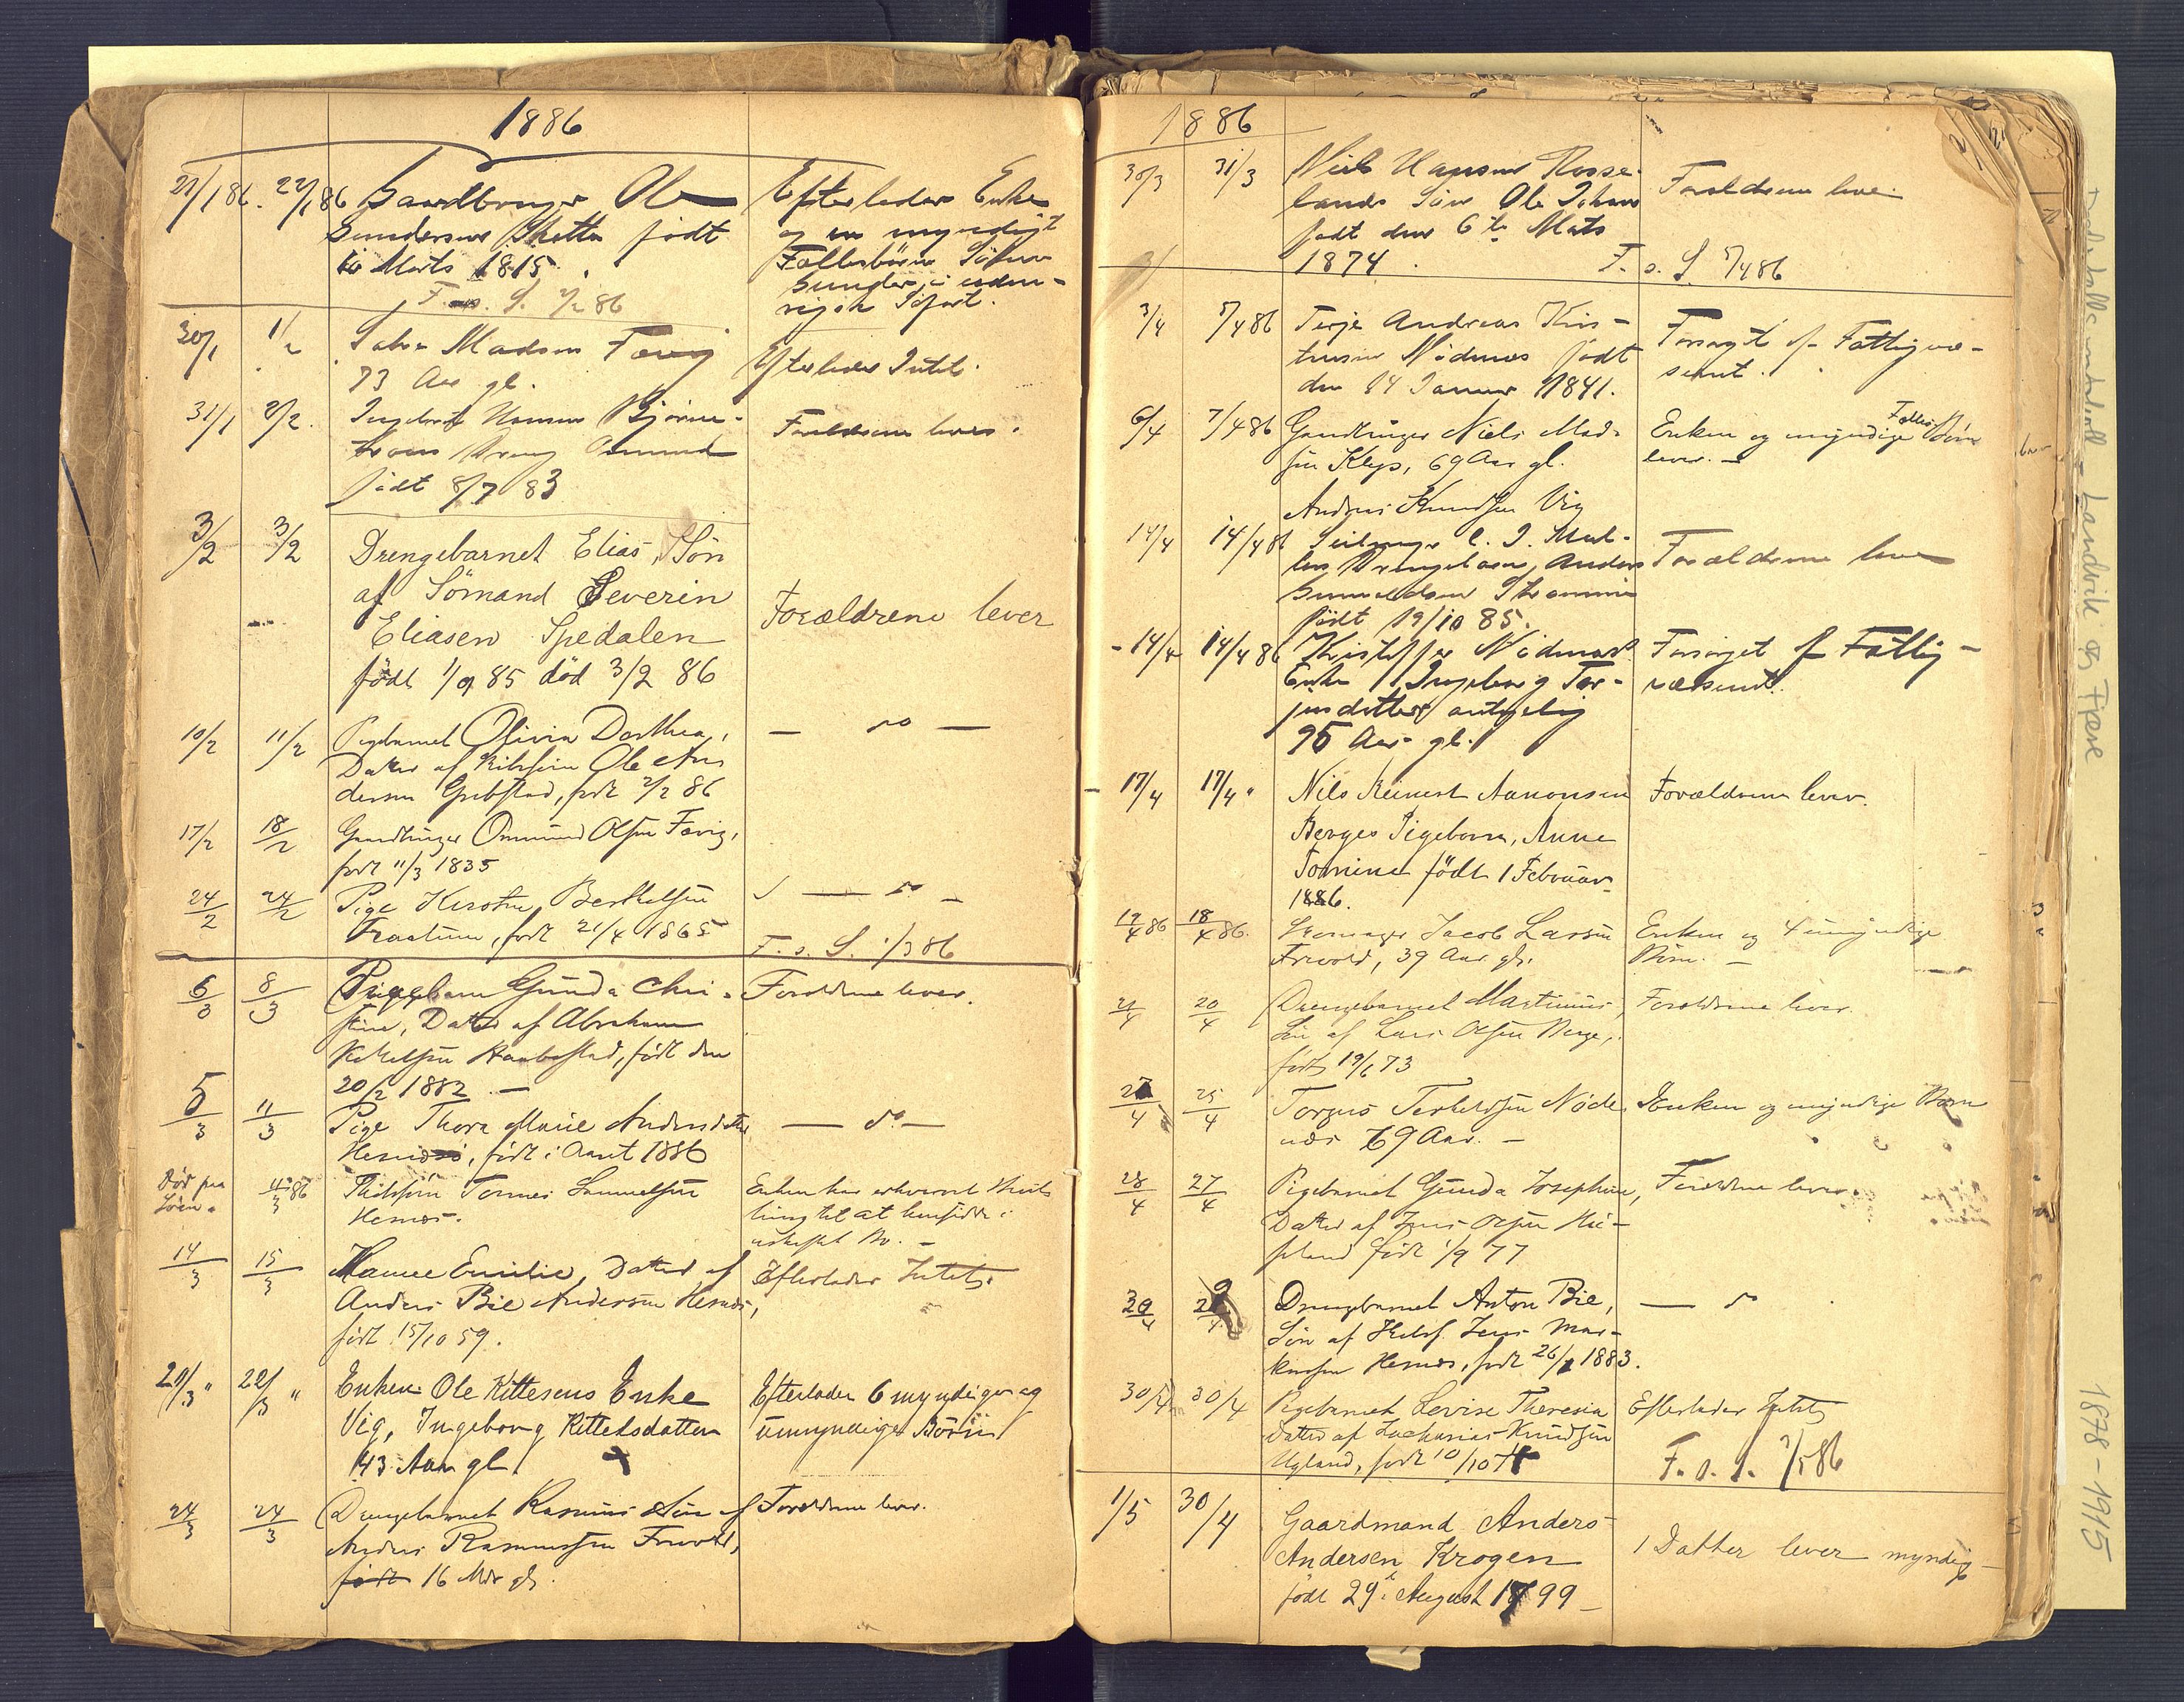 1886
21/1 86. 22/1 86 Gaardbruger Ole
Gundersen Skatte født
10 Marts 1815.
F. s. S. 2/2 86
Efterlader Enke
og en myndigt
Fællesbørn Sönen
Gunder, i uden-
rigsk Söfart.
30/1 1/2 Madsen Fævig
73 Aar gl.
Efterlader Intet.
31/1 2/2. Ingebret Hansen
Dreng Omund
født 8/7 83
Forældrene lever.
3/2 3/2 Drengebarnet Elias, Sön
af Sömand Severin
Eliasen Spedalen
født 1/9 85 död 3/2 86
Forældrene lever
10/2 11/2 Pigebarnet Olivia Dorthea,
Datter af Ole An
dersen Grebstad, født 2/2 86
— do —
17/2 18/2 Gaardbruger Ommund Olsen Fævig,
født 11/3 1835
24/2 24/2 Pige Kirstine Berthelsen
født 21/4 1865
— do —
F. s. S. 1/3 86
6/3 8/3 Pigebarn Gunda Chri-
stine, Datter af Abraham
Kittelsen født den
20/2 1882. —
Forældrene lever.
5/3 11/3 Pige Thora Marie Andersdatter
Hesnæs, født i Aaret 1886
— do —
Död paa
Söen.
11/3 86 Tønnes Samuelsen
Hesnæs.
Enken har erhvervet Bevil-
ling til at hensidde i
uskiftet Bo. —
14/3 15/3 Hanne Emilie, Datter af
Anders Bie Andersen Hesnæs,
født 15/10 59.
Efterlader Intet.
21/3 " 22/3 " Enken Ole Kittelsens Enke
Vig, Ingeborg Kittelsdatter
43 Aar gl.
Efterlader 6 myndige og
umyndige Börn
24/3 24/3 Drengebarnet Rasmus Sön af
Anders Rasmussen Frivold,
født 16 Mdr gl.
Forældrene lever.
1886
30/3 31/3 Niels Hansen Rosse-
lands Sön Ole Johan
født den 6te Mats
1874.
Forældrene lever.
F. s. S. 5/4 86
3/4 5/4 86 Terje Andreas Kris-
tensen Nödnes født
den 14 Januar 1841.
Forsörget af Fattigvæ-
senet.
6/4 7/4 86 Gaardbruger Niels Mad-
sen Klep, 69 Aar gl.
Enken og myndige Fælles Børn
lever. —
Anders Knudsen Vig
14/4 14/4 86
Drengebarn, Anders
født 19/10 85.
Forældrene lever
14/4 14/4 86 Kristoffer Nödnes
Enke Ingeborg Ter-
jesdatter antagelig
95 Aar gl.
Forsörget af Fattig-
væsenet.
17/4 17/4 " Nils Reinert Aanonsen
Berges Pigebarn, Anne
Tomine født 1 Februar
1886.
Forældrene lever.
17/4 86 18/4 86. Jacob Larsen
Frivold, 39 Aar gl.
Enken og 4 umyndige
Børn. —
21/4 20/4 Drengebarnet Martinius,
Sön af Lars Olsen Berge,
født 19/6 73
Forældrene lever.
25/4 Torgus Terkelsen Nöde-
næs 69 Aar. —
Enken og myndige Børn
28/4 27/4 Pigebarnet Gunda Josephine,
Datter af Jens Olsen
født 1/9 77
Forældrene lever.
29/4 Drengebarnet Anton Bie,
Sön af Jens Mar-
kussen Hesnæs, født 26/2 1883.
— do
30/4 30/4 Pigebarnet Levise Theresia
Datter af Zacharias Knudsen
Ugland, født 10/10
Efterlader Intet
F. s. S. 3/5 86
1/5 30/4 Gaardmand Anders
Andersen Krogen
födt 29. August 1799 —
1 Datter lever myndig —
Landvik og Fjære
1878-1915